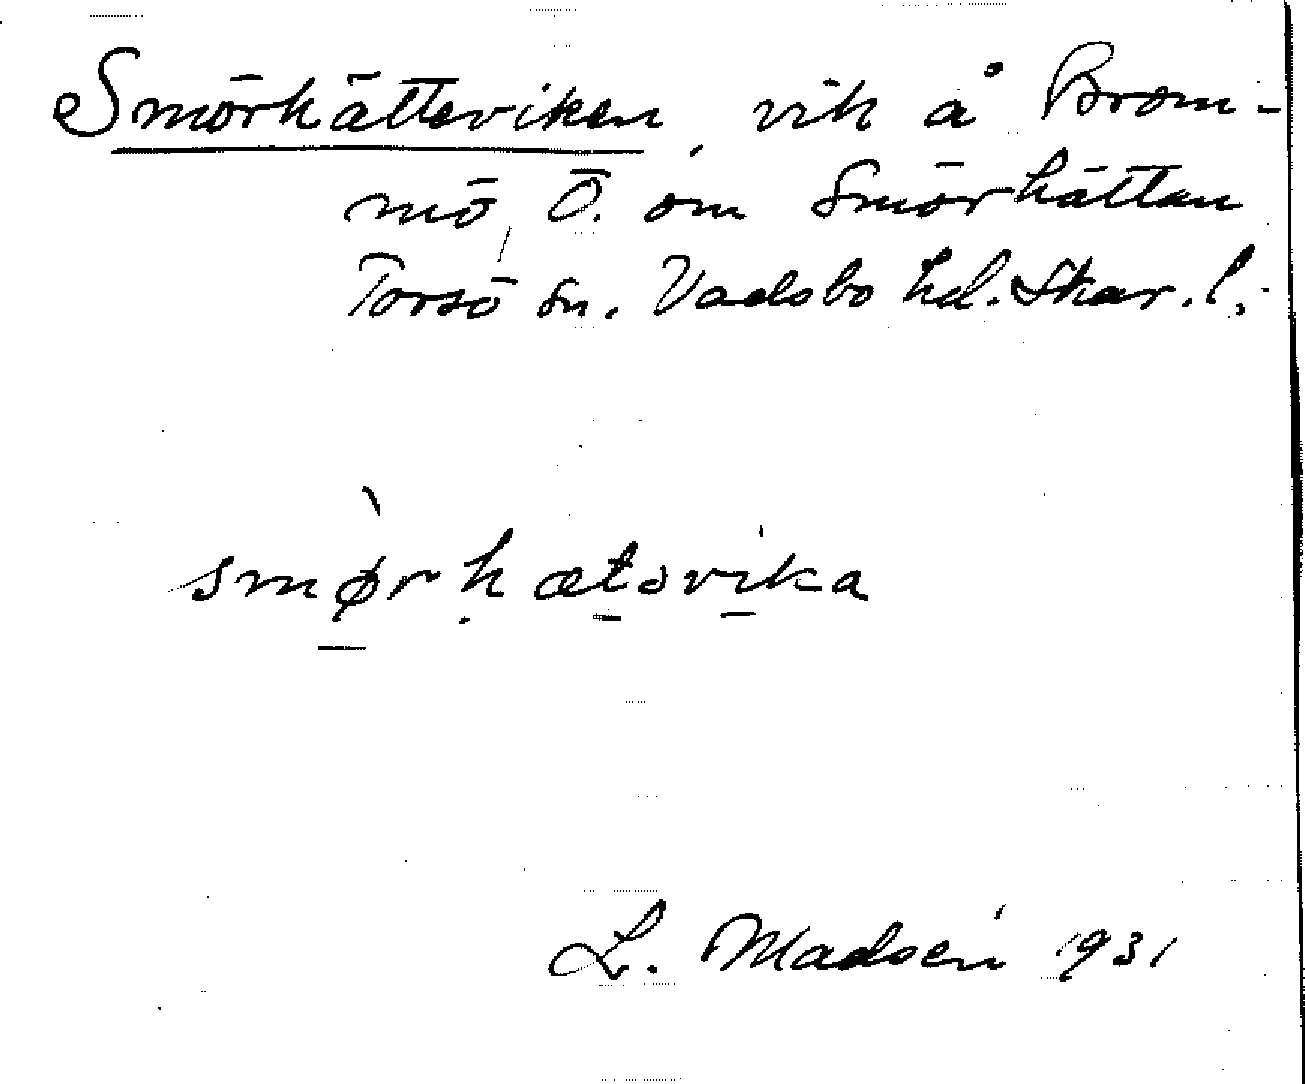 Smörhätteviken, vik å Brom-
mö, Ö. om Smörhättan
Torsö sn. Vadsbo hd. Skar. l.
smørhætəvika
L. Madsén 1931